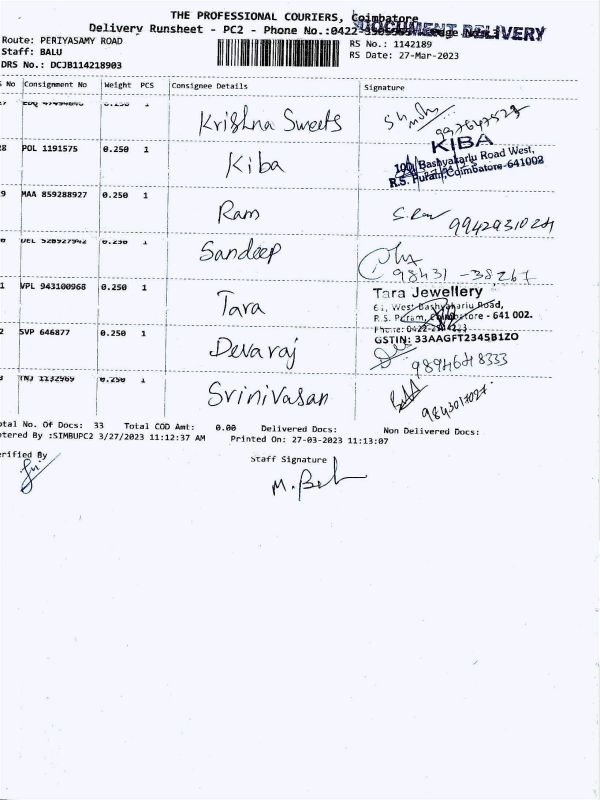 THE PROFESSIONAL COURIERS, Coimbatore
Delivery Runsheet - PC2 - Phone No.:0422-
DOCUMENT DELIVERY
Route: PERIYASAMY ROAD
RS No.: 1142189
Staff: BALU
RS Date: 27-Mar-2023
DRS No.: DCJB114218903
No Consignment No Weight PCS Consignee Details Signature
0.250 1 Krishna Sweets
8 POL 1191575 0.250 1 Kiba
KIBA
Bashyakarlu Road West,
R.S. Puram, Coimbatore-641002
9 MAA 859288927 0.250 1 Ram
0.250 1 Sandeep 98431-38267
1 VPL 943100968 0.250 1 Tara
Tara Jewellery
61, West Bashyakarlu Road,
R.S. Puram, Coimbatore - 641 002.
Phone: 0422-
GSTIN: 33AAGFT2345B1ZO
2 SVP 646877 0.250 1 Devaraj
TNJ 1132969 0.250 1 Srinivasan
otal No. Of Docs: 33 Total COD Amt: 0.00 Delivered Docs: Non Delivered Docs:
ntered By :SIMBUPC2 3/27/2023 11:12:37 AM Printed On: 27-03-2023 11:13:07
erified By
Staff Signature